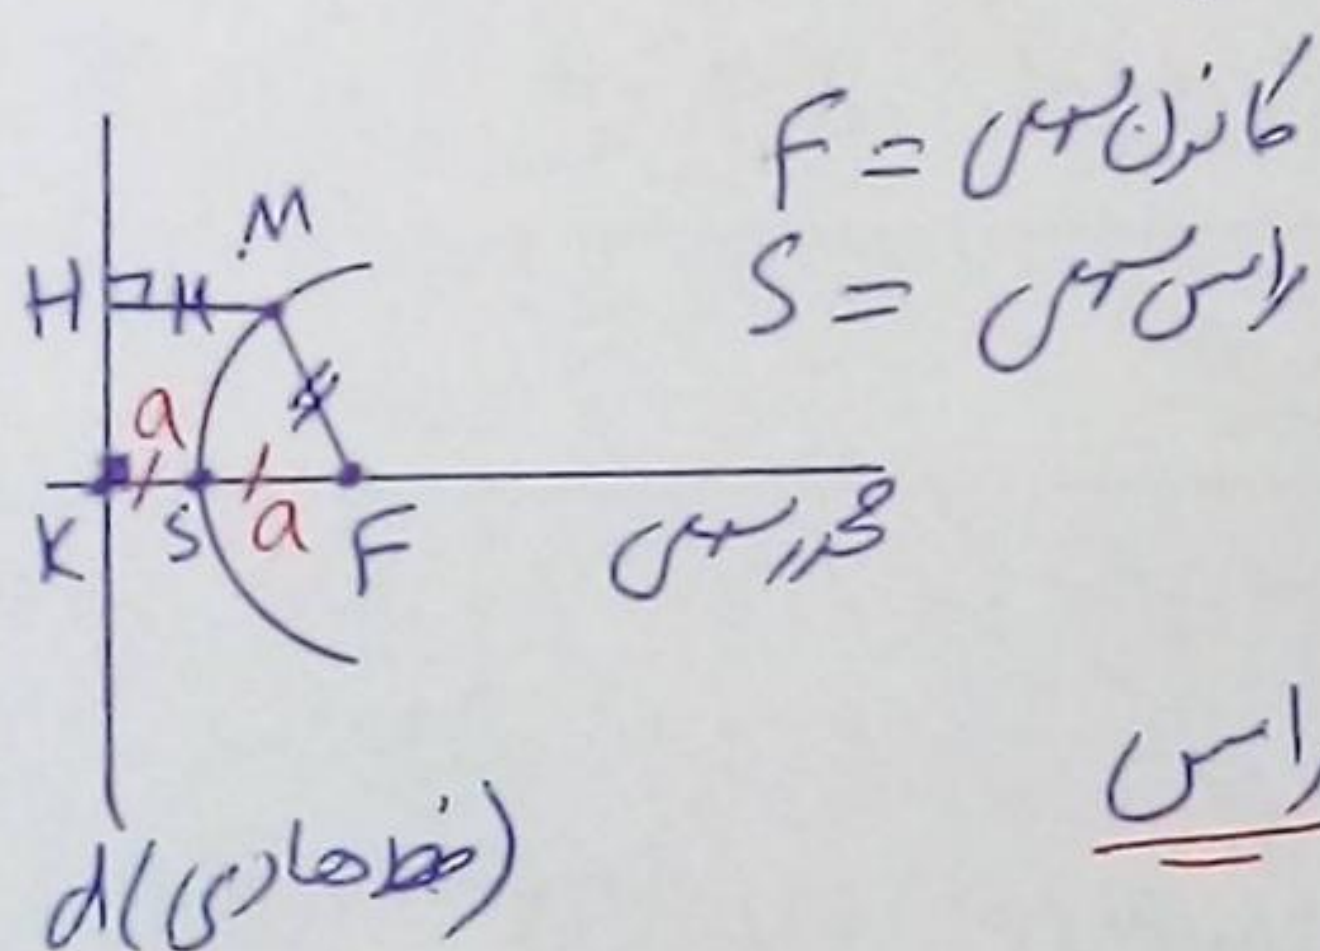 F = کانون سهمی
S = راس سهمی
M
H
a
K S a F
محور سهمی
راس
d (خط هادی)